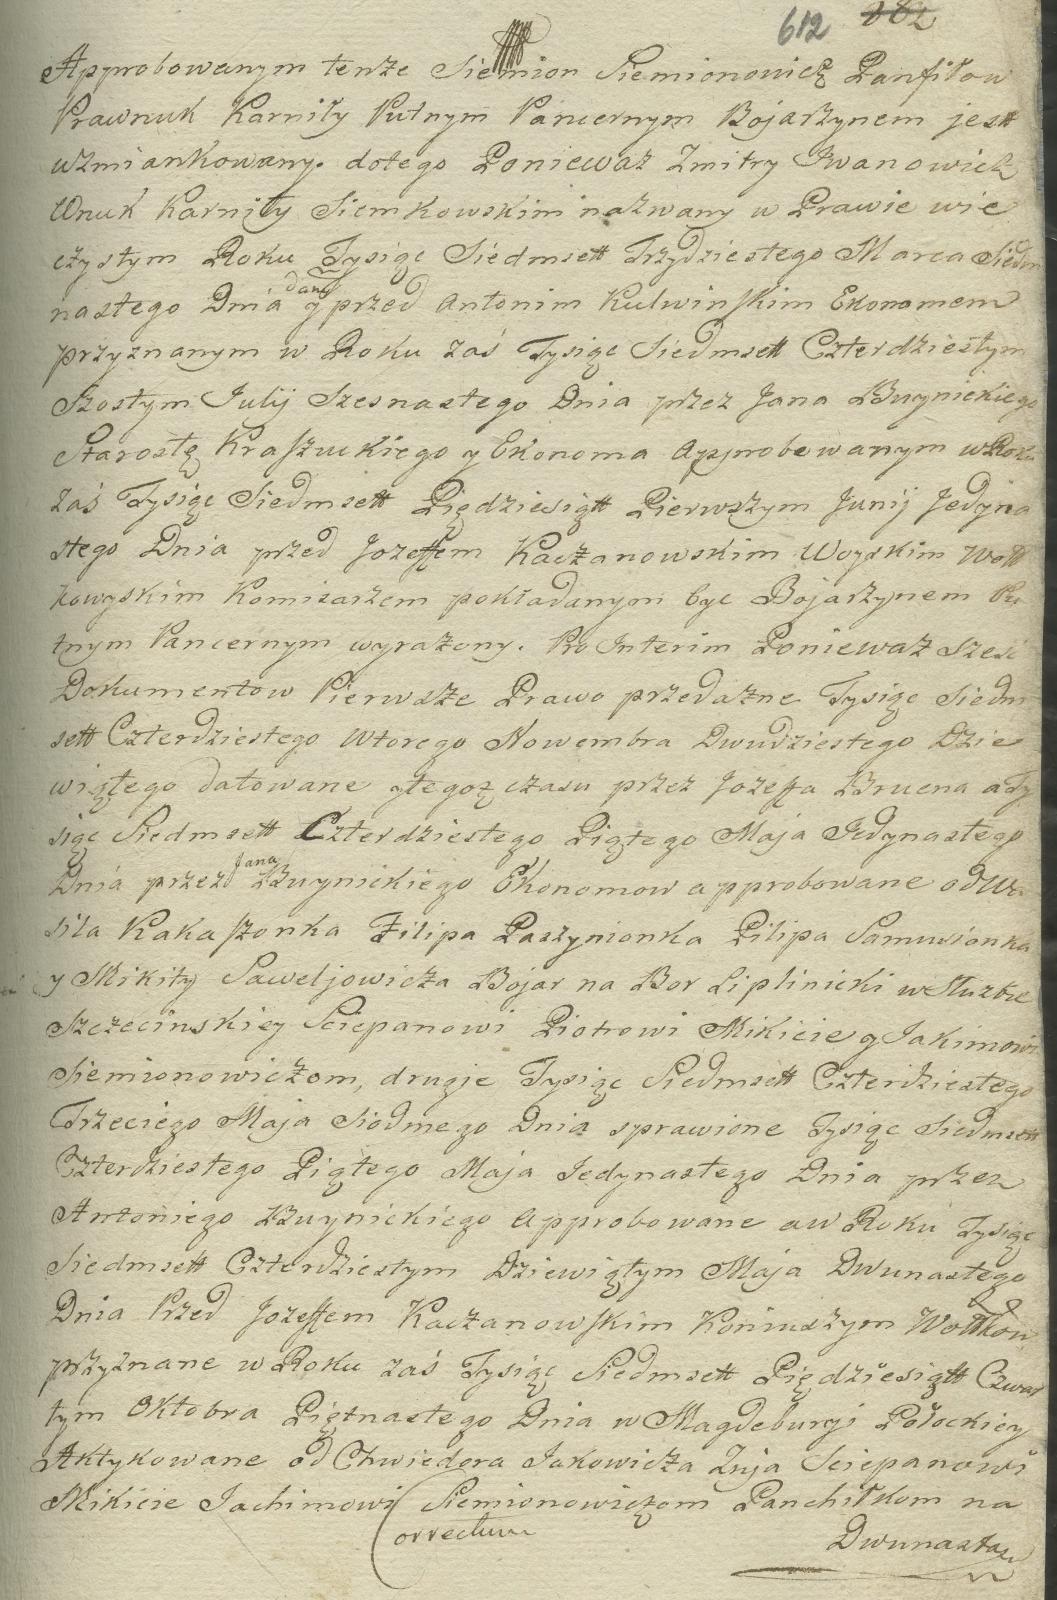 612 282
Approbowanym tenże Siemion Siemionowicz Panfiłow
Prawnuk Karniły Putnym Pancernym Bojarzynem jestt
wzmiankowany. dotego Ponieważ Zmitry Iwanowicz
Wnuk Karniły Siemkowskim nazwany w Prawie wie
czystym Roku Tysiąc Siedmsett Trzydziestego Marca Siedm
nastego Dnia dane y przed Antonim Kulwinskim Ekonomem
przyznanym w Roku zaś Tysiąc Siedmsett Czterdziestym
Szostym Julij Szesnastego Dnia przez Jana Buynickiego
Starostę Kraszuckiego y Ekonoma Approbowanym w Roku
zaś Tysiąc Siedmsett Pięдziesiątt Pierwszym Junij Jedyna
stego Dnia przed Jozeffem Kaczanowskim Woyskim Wołł
kowyskim Komisarzem pokładanym byc Bojarzynem Pu
tnym Pancernym wyrażony. Pro Interim Ponieważ Szesc
Dokumentow Pierwsze Prawo przedażne Tysiąc Siedm
sett Czterdziestego Wtorego Nowembra Dwudziestego Dzie
wiątego datowane ytegoz czasu przez Jozeffa Bruena a Ty
siąc Siedmsett Czterdziestego Piątego Maja Jedynastego
Dnia przez Jana Buynickiego Ekonomow approbowane od Wa
sila Kakaszonka Filipa Paszynionka Pilipa Samusionka
y Mikity Saweljowicza Bojar na Bor Liplinicki w Służbie
Szczecinskiey Sciepanowi Piotrowi Mikicie y Jakimowi
Siemionowiczom, drugie Tysiąc Siedmsett Czterdziestego
Trzeciego Maja Siodmego Dnia sprawione Tysiąc Siedmsett
Czterdziestego Piątego Maja Jedynastego Dnia przez
Antoniego Buynickiego Approbowane a w Roku Tysiąc
Siedmsett Czterdziestym Dziewiątym Maja Dwunastego
Dnia Przed Jozeffem Kaczanowskim Koniuszym Wołłkow
przyznane w Roku zaś Tysiąc Siedmsett Pięдdziesiątt Czwar
tym Oktobra Piętnastego Dnia w Magdeburyi Połockiey
Aktykowane od Chwiedora Jakowicza Zuja Sciepanowi
Mikicie Jachimowi Siemionowiczom Panchiłkom na
Correctum Dwunasta